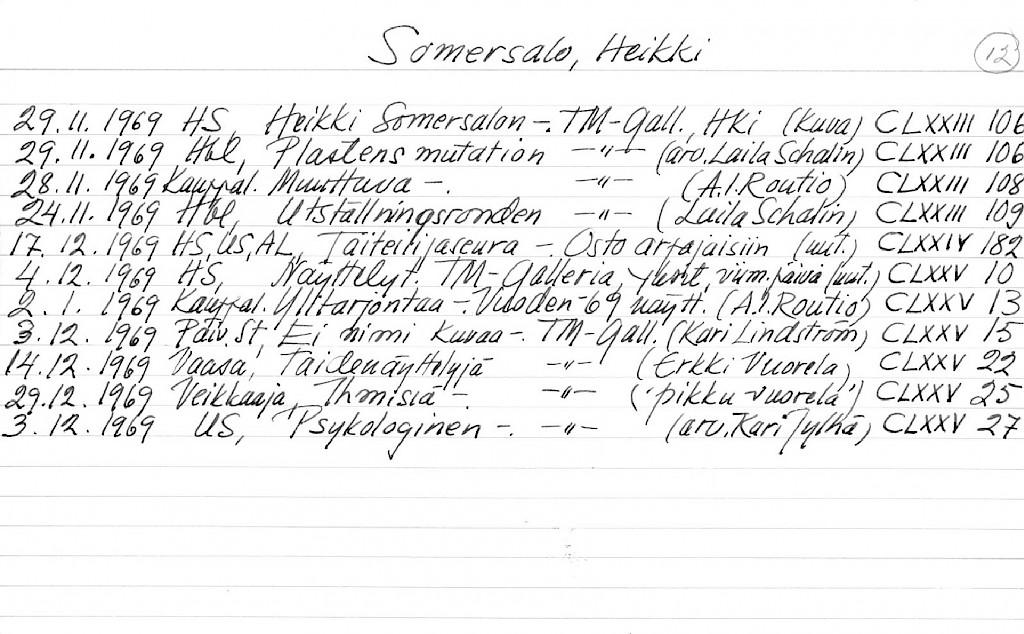 Somersalo, Heikki 12
29.11.1969 HS, Heikki Somersalon -. TM-Gall., HKi (Kuva) CLXXIII 106
29.11.1969 Hbl, Plastens mutation -"- (arv. Laila Schalin) CLXXIII 106
28.11.1969 Kauppal. Muuttuva -. -"- (A.I. Routio) CLXXIII 108
24.11.1969 Hbl, Utställningsronden -"- (Laila Schalin) CLXXIII 109
17.12.1969 HS, US, AL, Taiteilijaseura -. Osto arpajaisiin (uut.) CLXXIV 182
4.12.1969 HS, Näyttelyt. TM-Galleria, viim. päivä (uut.) CLXXV 10
2.1.1969 Kauppal. Ylitarjontaa -. Vuoden -69 näytt. (A.I. Routio) CLXXV 13
3.12.1969 Päiv. S:t, Ei nimi kuvaa -. TM-Gall. (Kari Lindström) CLXXV 15
14.12.1969 Vaasa, Taidenäyttelyjä -"- (Erkki Vuorela) CLXXV 22
29.12.1969 Veikkaaja, Ihmisiä -. -"- ('pikku-vuorela') CLXXV 25
3.12.1969 US, Psykologinen -. -"- (arv. Kari Jylhä) CLXXV 27